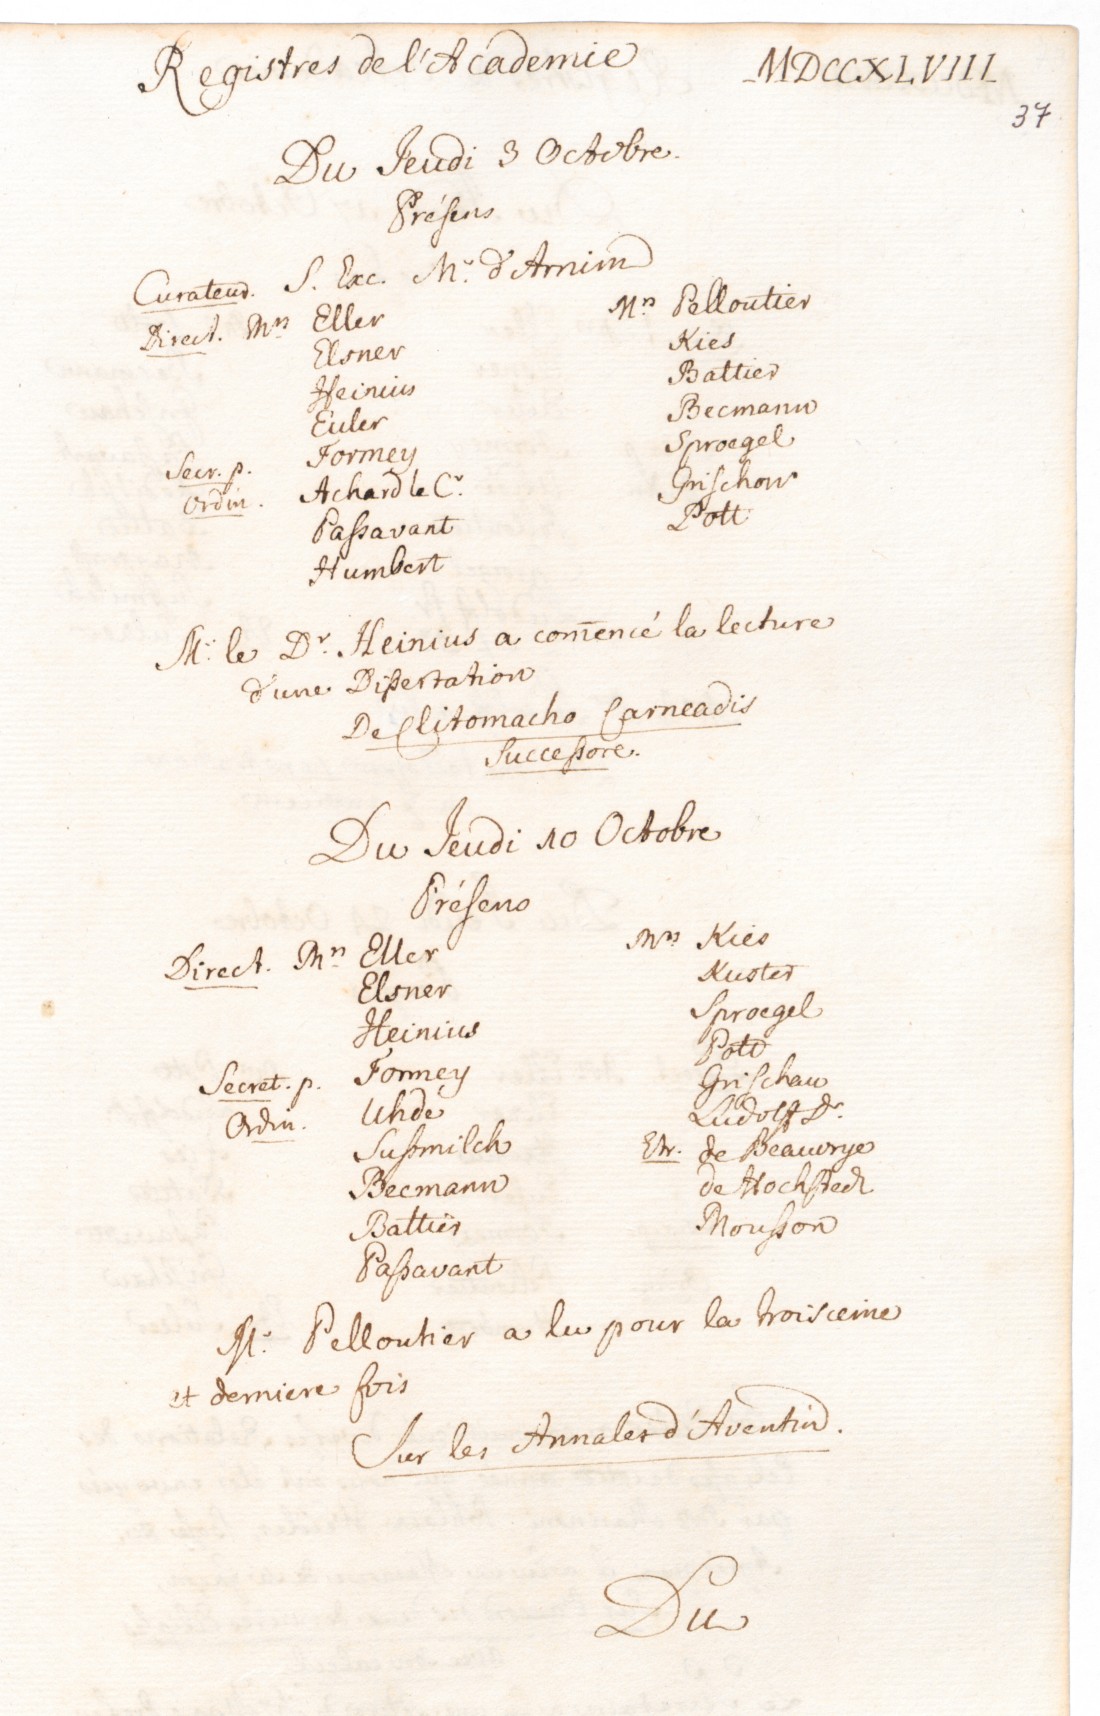 Registres de l'Academie MDCCXLVIII
37
Du Jeudi 3 Octobre.
Présens
Curateur. S. Exc. Mr. d'Arnim
Direct. Mrs Eller
Elsner
Heinius
Euler
Secr. p. Formey
Ordin. Achard le Cr.
Passavant
Humbert
Mrs Pelloutier
Kies
Battier
Becmann
Sproegel
Grischow
Pott
Mr. le Dr. Heinius a com̄encé la lecture
d'une Dissertation
De Clitomacho Carneadis
Successore.
Du Jeudi 10 Octobre
Présens
Direct. Mrs Eller
Elsner
Heinius
Secret. p. Formey
Ordin. Uhde
Sussmilch
Becmann
Battier
Passavant
Mrs Kies
Kuster
Sproegel
Pott
Grischau
Ludolff Dr.
Etr. de Beauvrye
de Hochstedt
Mousson
Mr. Pelloutier a lu pour la troisceme
et derniere fois
Sur les Annales d'Aventin.
Du